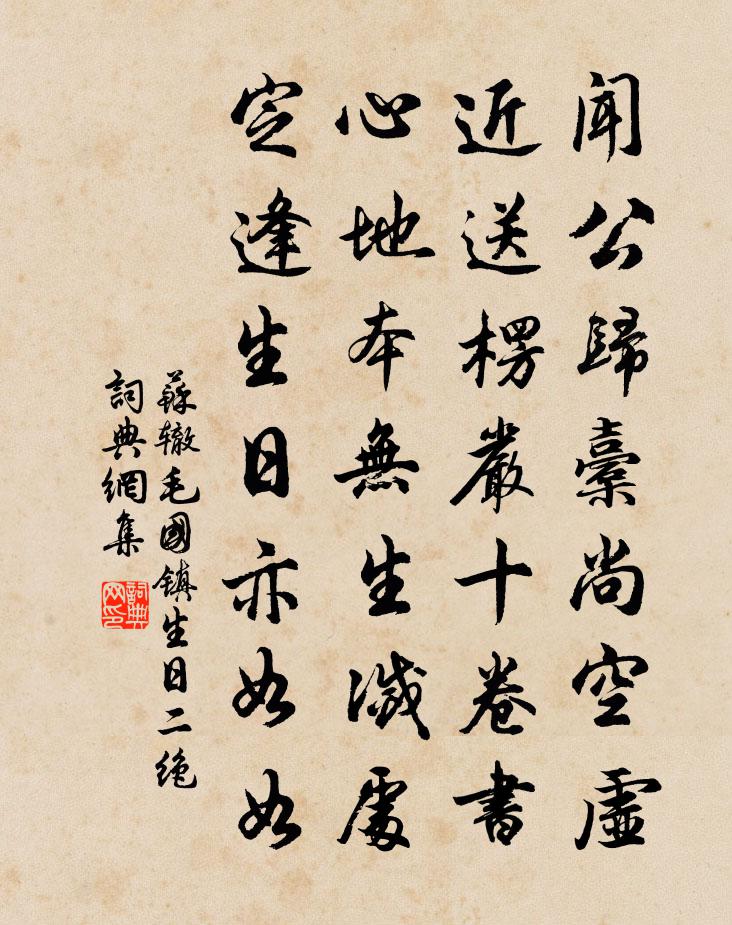 聞公歸橐尚空虛
近送楞嚴十卷書
心地本無生滅處
定逢生日亦如如
蘇辙毛國鎮生日二绝
詞典網集
詞典网印